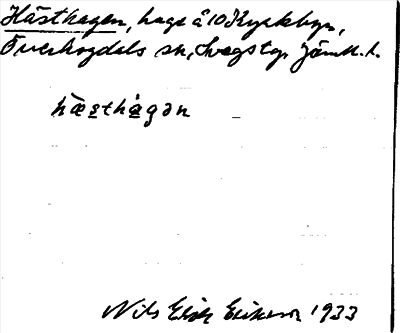 Hästhagen, hage å 10 Kyrkbyn,
Överhogdals sn, Svegs tg. Jämtl. l.
hæ̀sthàgən
Nils Eric Eriksson 1933